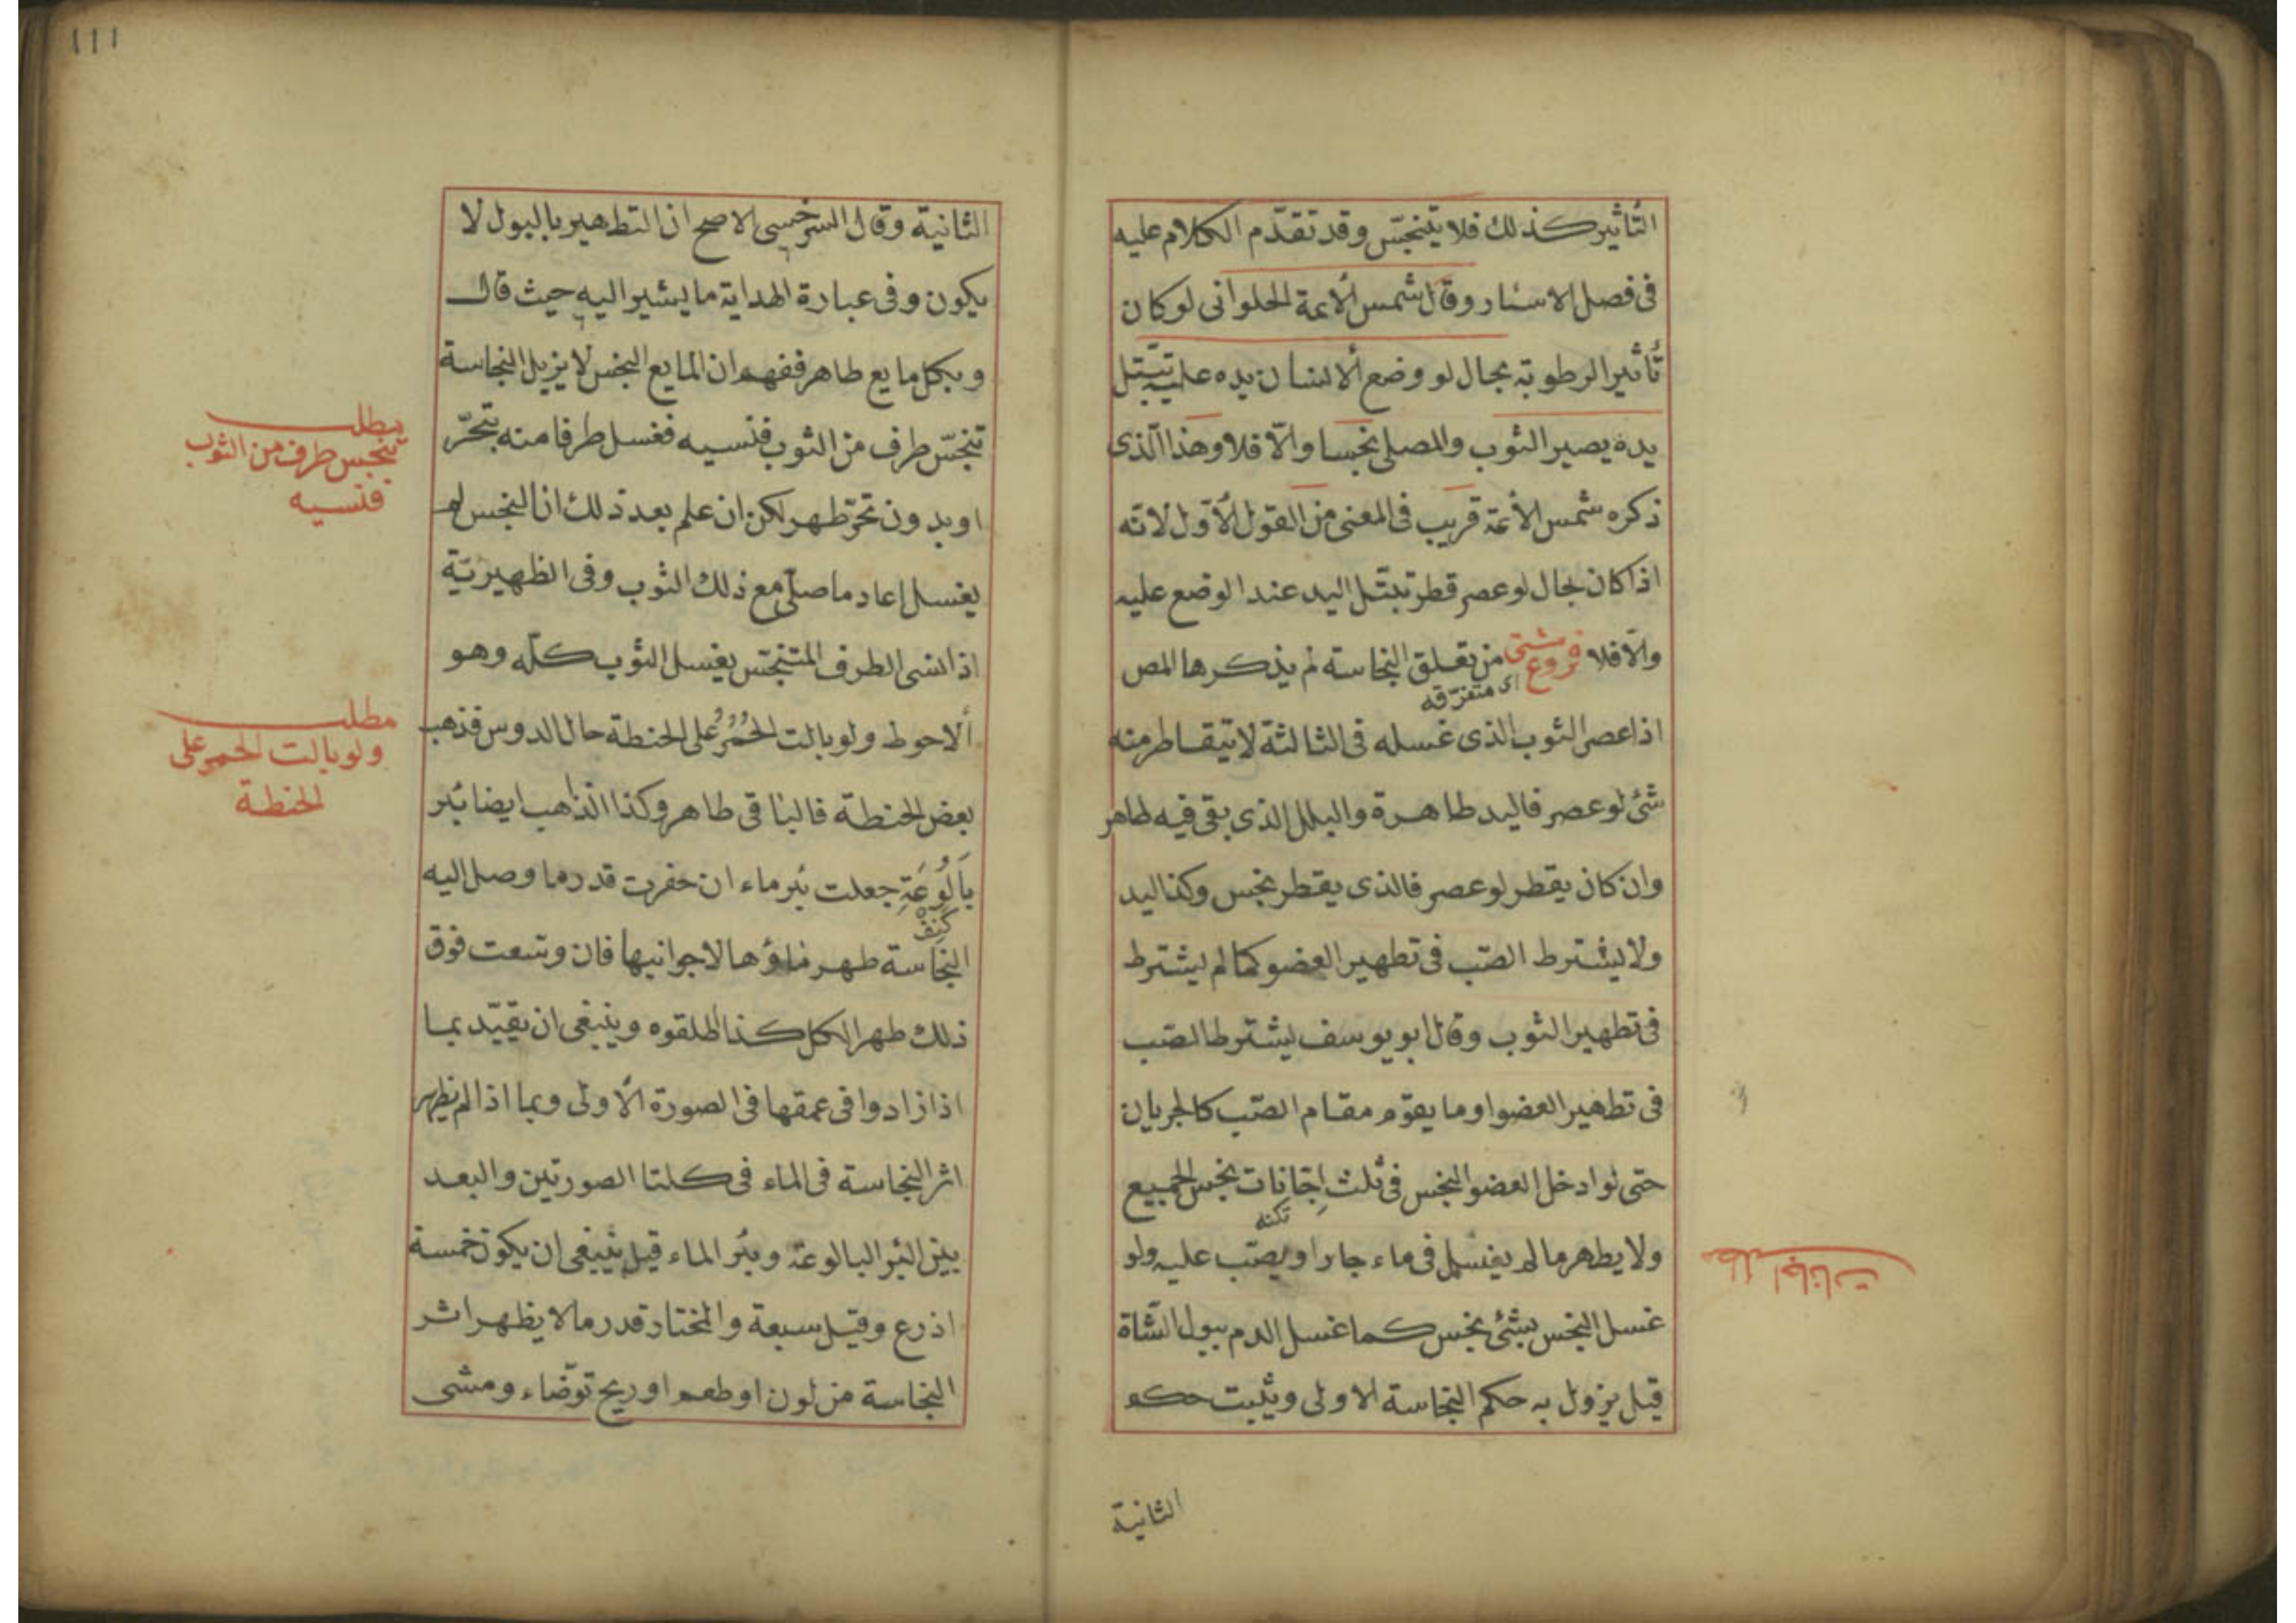 التأثير كذلك فلا يتنجّس وقد تقدّم الكلام عليه
فى فصل الاسئار وقال شمس الأئمة الحلوانى لو كان
تأثير الرطوبة بحال لو وضع الانسان يده عليه تبتل
يده يصير الثوب والمصلى نجسا والّا فلا وهذا الّذى
ذكره شمس الأئمة قريب فى المعنى من القول الأوّل لانّه
اذا كان بحال لو عصر قطر تبتّل اليد عند الوضع عليه
والّا فلا فروع شتى من تعلق النجاسة لم يذكرها المص
اى متفرّقه
اذا عصر الثوب الذى غسله فى الثالثة لا يتقاطر منه
شئ لو عصر فاليد طاهرة والبلل الذى بقى فيه طاهر
وان كان يقطر لو عصر فالذى يقطر نجس وكذا اليد
ولا يشترط الصّب فى تطهير العضو كما لم يشترط
فى تطهير الثوب وقال ابو يوسف يشترط الصّب
فى تطهير العضو او ما يقوّم مقام الصّب كالجريان
حتى لو ادخل العضو النجس فى ثلث اِجّانات نجس الجميع
تكنه
ولا يطهر مالم يغسل فى ماء جار او يصّب عليه ولو
غسل النجس بشئ نجس كما غسل الدم ببول الشّاة
قيل يزول به حكم النجاسة الاولى ويثبت حكم
الثانية
مطلب اجانات
١١١
الثانية وقال السرخسى الاصح ان التطهير بالبول لا
يكون وفى عبارة الهداية ما يشير اليه حيث قال
وبكل مايع طاهر ففهم ان المايع النجس لا يزيل النجاسة
تنجّس طرف من الثوب فنسيه فغسل طرفا منه بتحرّ
او بدون تحرّ طهر لكن ان علم بعد ذلك ان النجس لم
يغسل اعاد ما صلّى مع ذلك الثوب وفى الظهيريّة
اذا نسى الطرف المتنجّس يغسل الثوب كلّه وهو
ألاحوط ولو بالت الحُمُرُ على الحنطة حال الدوس فذهب
بعض الحنطة فالباقى طاهر وكذا الذاهب ايضا بئر
بَالُوعَةِ جعلت بئر ماء ان حفرت قدر ما وصل اليه
كنف
النجاسة طهر ماؤها لا جوانبها فان وسّعت فوق
ذلك طهر الكل كذا اطلقوه وينبغى ان يقيّد بما
اذا زادوا فى عمقها فى الصورة الأولى وبما اذا لم يظهر
اثر النجاسة فى الماء فى كلتا الصورتين والبعد
بين البئر البالوعة وبئر الماء قيل ينبغى ان يكون خمسة
اذرع وقيل سبعة والمختار قدر ما لا يظهر اثر
النجاسة من لون او طعم او ريح توضّاء ومشى
مطلب
تنجس طرف من الثوب
فنسيه
مطلب
ولو بالت الحمر على
الحنطة